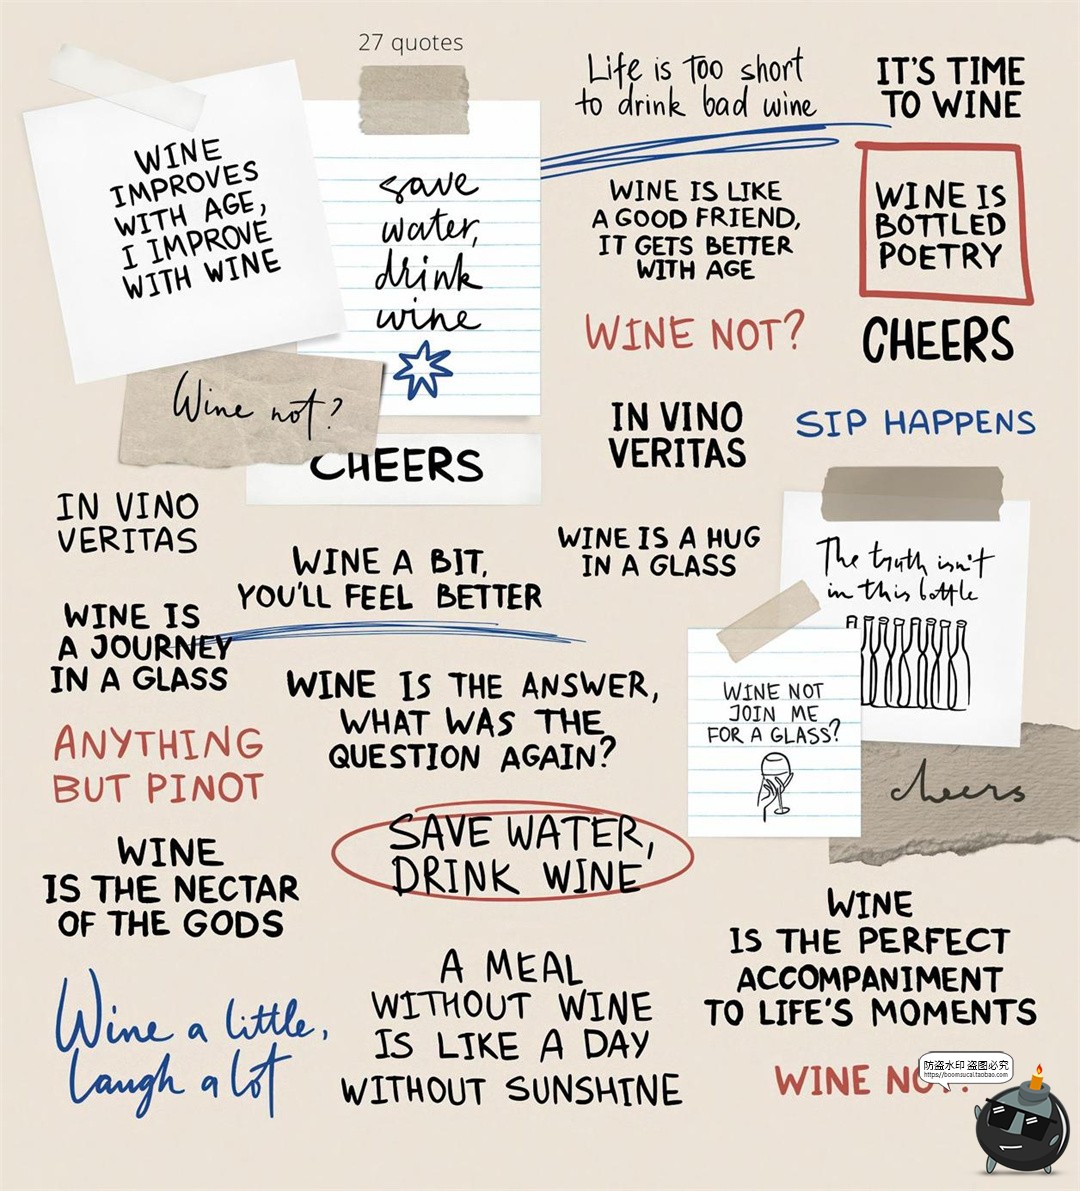 27 quotes
WINE
IMPROVES
WITH AGE,
I IMPROVE
WITH WINE
save
water,
drink
wine
Wine not?
CHEERS
Life is too short
to drink bad wine
IT'S TIME
TO WINE
WINE IS LIKE
A GOOD FRIEND,
IT GETS BETTER
WITH AGE
WINE IS
BOTTLED
POETRY
WINE NOT?
CHEERS
IN VINO
VERITAS
SIP HAPPENS
IN VINO
VERITAS
WINE A BIT,
YOU'LL FEEL BETTER
WINE IS A HUG
IN A GLASS
The truth isn't
in this bottle
WINE IS
A JOURNEY
IN A GLASS
WINE IS THE ANSWER,
WHAT WAS THE
QUESTION AGAIN?
WINE NOT
JOIN ME
FOR A GLASS?
cheers
ANYTHING
BUT PINOT
SAVE WATER,
DRINK WINE
WINE
IS THE NECTAR
OF THE GODS
WINE
IS THE PERFECT
ACCOMPANIMENT
TO LIFE'S MOMENTS
Wine a little,
laugh a lot
A MEAL
WITHOUT WINE
IS LIKE A DAY
WITHOUT SUNSHINE
WINE NO
防盗水印 盗图必究
https://boomsucai.taobao.com